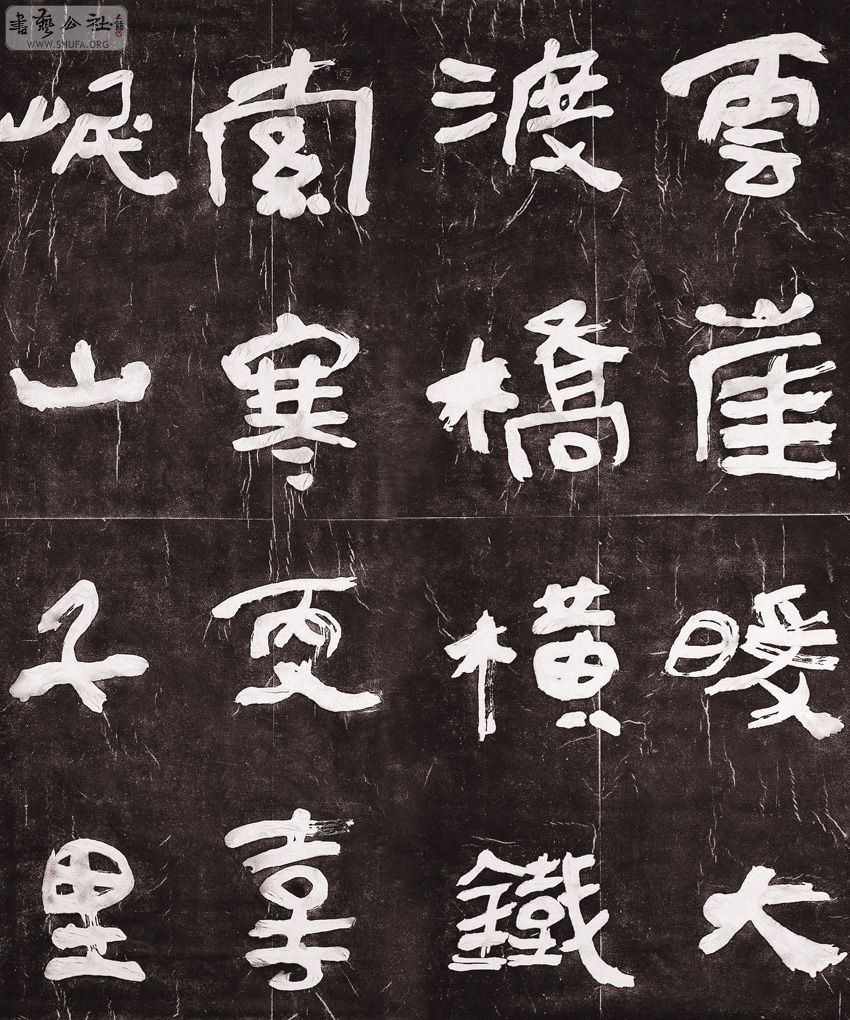 書藝公社
WWW.SHUFA.ORG
雲崖暖大
渡橋橫鐵
索寒更喜
岷山千里